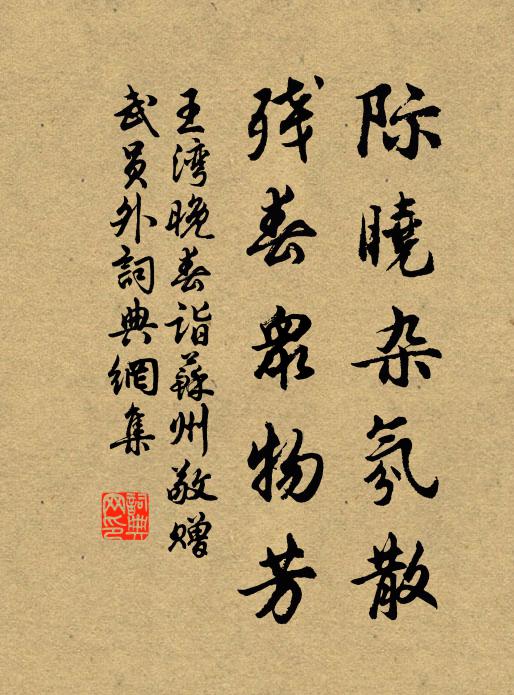 际晓杂氛散
残春众物芳
王湾晚春诣苏州敬赠
武员外词典网集
词典网印